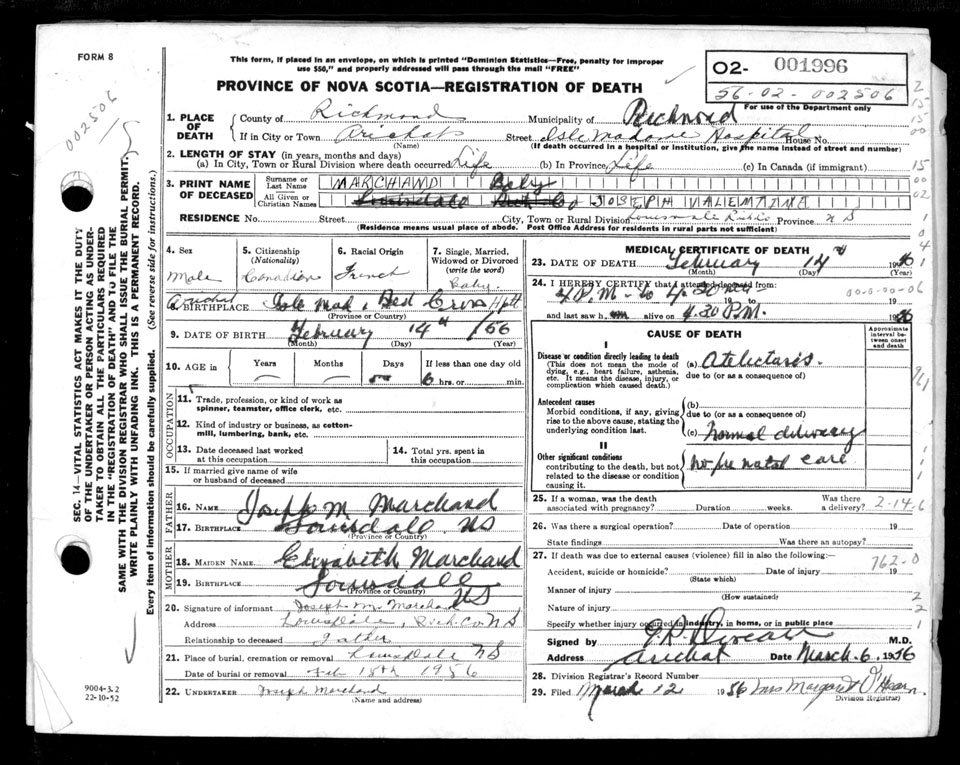 FORM 8
This form, if placed in an envelope, on which is printed "Dominion Statistics—Free, penalty for improper
use $50," and properly addressed will pass through the mail "FREE"
PROVINCE OF NOVA SCOTIA—REGISTRATION OF DEATH
O2- 001996
56-02-002506
For use of the Department only
0002506
1. PLACE OF DEATH
County of Richmond Municipality of Richmond
If in City or Town Arichat Street Isle Madame Hospital House No.
(Name) (If death occurred in a hospital or institution, give the name instead of street and number)
2. LENGTH OF STAY (in years, months and days)
(a) In City, Town or Rural Division where death occurred Life (b) In Province Life (c) In Canada (if immigrant)
3. PRINT NAME OF DECEASED
Surname or Last Name MARCHAND Baby
All Given or Christian Names Louisdale Rich Co JOSEPH VALEMTINA
RESIDENCE No. Street City, Town or Rural Division Louisdale Rich Co Province N S
(Residence means usual place of abode. Post Office Address for residents in rural parts not sufficient)
4. Sex Male
5. Citizenship (Nationality) Canadian
6. Racial Origin French
7. Single, Married, Widowed or Divorced (write the word) Baby
8. BIRTHPLACE Arichat Isle Mad. Red Cross Hptl
(Province or Country)
9. DATE OF BIRTH February 14th /56
(Month) (Day) (Year)
10. AGE in Years Months Days If less than one day old
6 hrs. or min.
OCCUPATION
11. Trade, profession, or kind of work as
spinner, teamster, office clerk, etc.
12. Kind of industry or business, as cotton-
mill, lumbering, bank, etc.
13. Date deceased last worked at this occupation
14. Total yrs. spent in this occupation
15. If married give name of wife
or husband of deceased
FATHER
16. Name Joseph M Marchand
17. Birthplace Louisdale NS
(Province or Country)
MOTHER
18. MAIDEN NAME Elizabeth Marchand
19. Birthplace Louisdale NS
(Province or Country)
20. Signature of informant Joseph M. Marchand
Address Louisdale, Rich. Co N S
Relationship to deceased father
21. Place of burial, cremation or removal Louisdale NS
Date of burial or removal Feb 15th 1956
22. UNDERTAKER Joseph Marchand
(Name and address)
MEDICAL CERTIFICATE OF DEATH
23. DATE OF DEATH February 14th 1956
(Month) (Day) (Year)
24. I HEREBY CERTIFY that I attended deceased from:
4 P.M. to 4.30 19 to 19
and last saw h alive on 4.30 P.M. 1956
00-0-00-06
CAUSE OF DEATH
Approximate interval between onset and death
I
Disease or condition directly leading to death
(This does not mean the mode of dying, e.g., heart failure, asthenia, etc. It means the disease, injury, or complication which caused death.)
(a) Atelectaris.
due to (or as a consequence of)
Antecedent causes
Morbid conditions, if any, giving rise to the above cause, stating the underlying condition last.
(b)
due to (or as a consequence of)
(c) normal delivery
II
Other significant conditions
contributing to the death, but not related to the disease or condition causing it.
no pre natal care
25. If a woman, was the death
associated with pregnancy? Duration weeks. Was there a delivery?
2-14-6
26. Was there a surgical operation? Date of operation 19
State findings Was there an autopsy?
27. If death was due to external causes (violence) fill in also the following:—
Accident, suicide or homicide? Date of injury 19
762-0
(State which)
Manner of injury
(How sustained)
Nature of injury
Specify whether injury occurred in industry, in home, or in public place
Signed by M.D.
Address Arichat Date March 6 1956
28. Division Registrar's Record Number
29. Filed March 12 1956 Mrs Margaret O'Hearn.
Division Registrar)
SEC. 14—VITAL STATISTICS ACT MAKES IT THE DUTY
OF THE UNDERTAKER OR PERSON ACTING AS UNDER-
TAKER TO OBTAIN ALL THE PARTICULARS REQUIRED
IN THE "REGISTRATION OF DEATH" AND TO FILE THE
SAME WITH THE DIVISION REGISTRAR WHO SHALL ISSUE THE BURIAL PERMIT.
WRITE PLAINLY WITH UNFADING INK. THIS IS A PERMANENT RECORD.
Every item of information should be carefully supplied. (See reverse side for instructions.)
9004-3.2
22-10-52